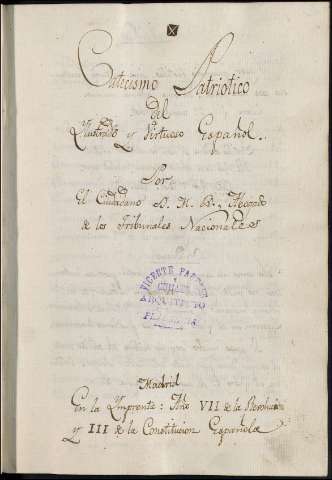 Catecismo Patriotico
del
Ylustrado y Virtuoso Español.
Por
El Ciudadano D. M. B. Abogado
de los Tribunales Nacionales
VICENTE
ARQUITECTO
Madrid
En la Ymprenta: Año VII de la Revolucion
y III de la Constitucion Española